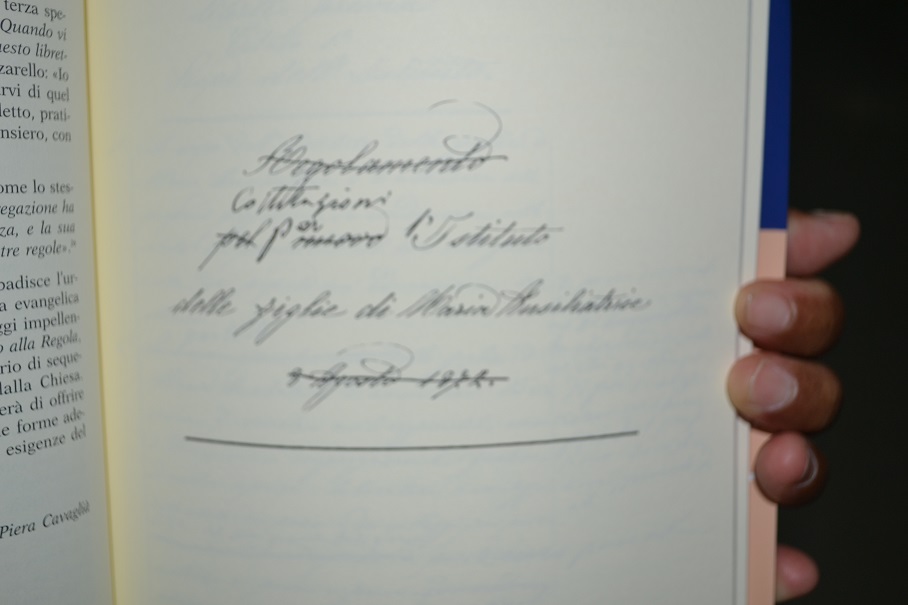 terza spe-
Quando vi
uesto libret-
zarello: «Io
rvi di quel
letto, prati-
nsiero, con
ome lo stes-
egazione ha
za, e la sua
tre regole».
padisce l'ur-
a evangelica
ggi impellen-
o alla Regola.
rio di seque-
dalla Chiesa.
erà di offrire
e forme ade-
esigenze del
Piera Cavaglià
Regolamento
Costituzioni
per l'Istituto
delle figlie di Maria Ausiliatrice
Agosto